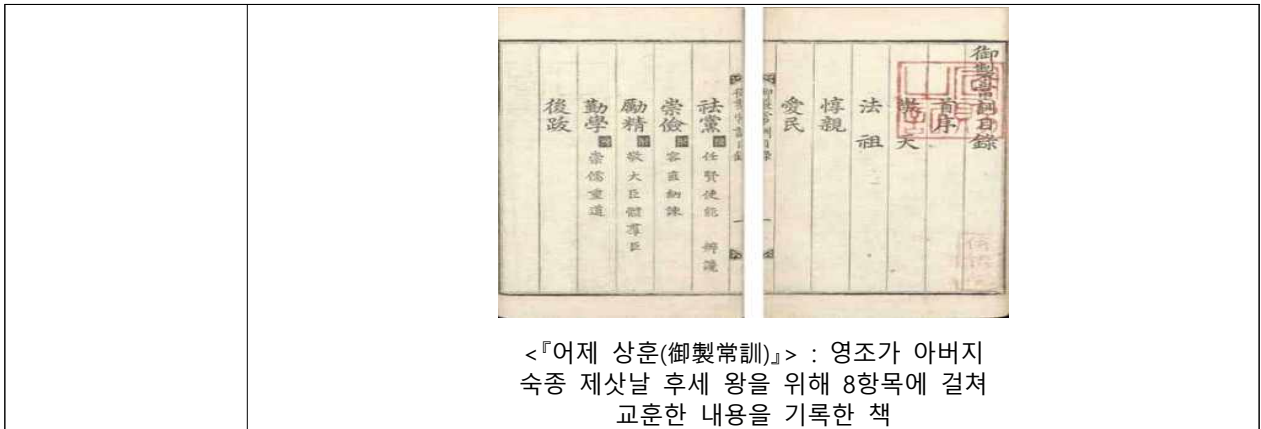 御製常訓目錄
首序
崇天
法祖
惇親
愛民
祛黨 附 任賢使能 辨讒
崇儉 附 容直納諫
勵精 附 敬大臣體羣臣
勤學 附 崇儒重道
後跋
<『어제 상훈(御製常訓)』> : 영조가 아버지
숙종 제삿날 후세 왕을 위해 8항목에 걸쳐
교훈한 내용을 기록한 책